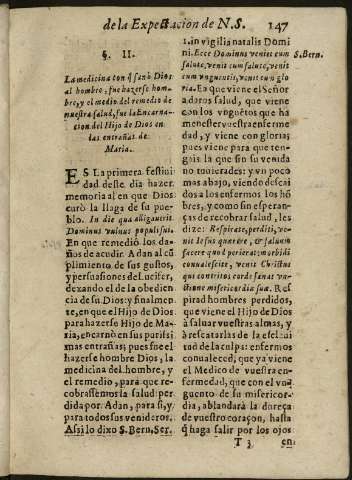 de la Expectacion de N.S. 147
§. II.
La medicina con q̃ sanò Dios
al hombre, fue hazerse hom-
bre, y el medio del remedio de
nuestra salud, fue la Encarna-
cion del Hijo de Dios en
las entrañas de
Maria.
ES La primera festiui
dad deste dia hazer
memoria al en que Dios
curò la llaga de su pue-
blo. In die qua alligauerit
Dominus vulnus populi sui.
En que remediò los da-
ños de acudir. Adan al cũ
plimiento de sus gustos,
y persuasiones del lucifer,
dexando el de la obedien
cia de su Dios: y finalmen
te, en que el Hijo de Dios
para hazerse Hijo de Ma-
ria, encarnò en sus purissi
mas entrañas; pues fue el
hazerse hombre Dios, la
medicina del hombre, y
el remedio, para que re-
cobrassemos la salud per-
dida por Adan, para si, y
para todos sus venideros.
Assi lo dixo S. Bern. Ser.
1. in vigilia natalis Domi
ni. Ecce Dominus veniet cum
salute, venit cum salute, venit
cum vnguentis, venit cum glo
ria. En que viene el Señor
a daros salud, que viene
con los vnguẽtos que ha
menester vuestra enferme
dad, y viene con gloria;
pues viene para que ten-
gais la que sin su venida
no tuuierades; y vn poco
mas abajo, viendo descai
dos a los enfermos los hõ
bres, y como sin esperan-
ças de recobrar salud, les
dize: Respirate, perditi, ve-
nit Iesus quærere, & saluum
facere quod perierat: morbidi
conualescite, venit Christus
qui contritos corde sanat vn-
ctione misericordiæ suæ. Res
pirad hombres perdidos,
que viene el Hijo de Dios
à saluar vuestras almas, y
à rescatarlas de la esclaui
tud de la culpa: enfermos
conualeced, que ya viene
el Medico de vuestra en-
fermedad, que con el vn-
guento de su misericor-
dia, ablandarà la dureça
de vuestro coraçon, hasta
q̃ haga salir por los ojos
T 3 en-
S. Bern.